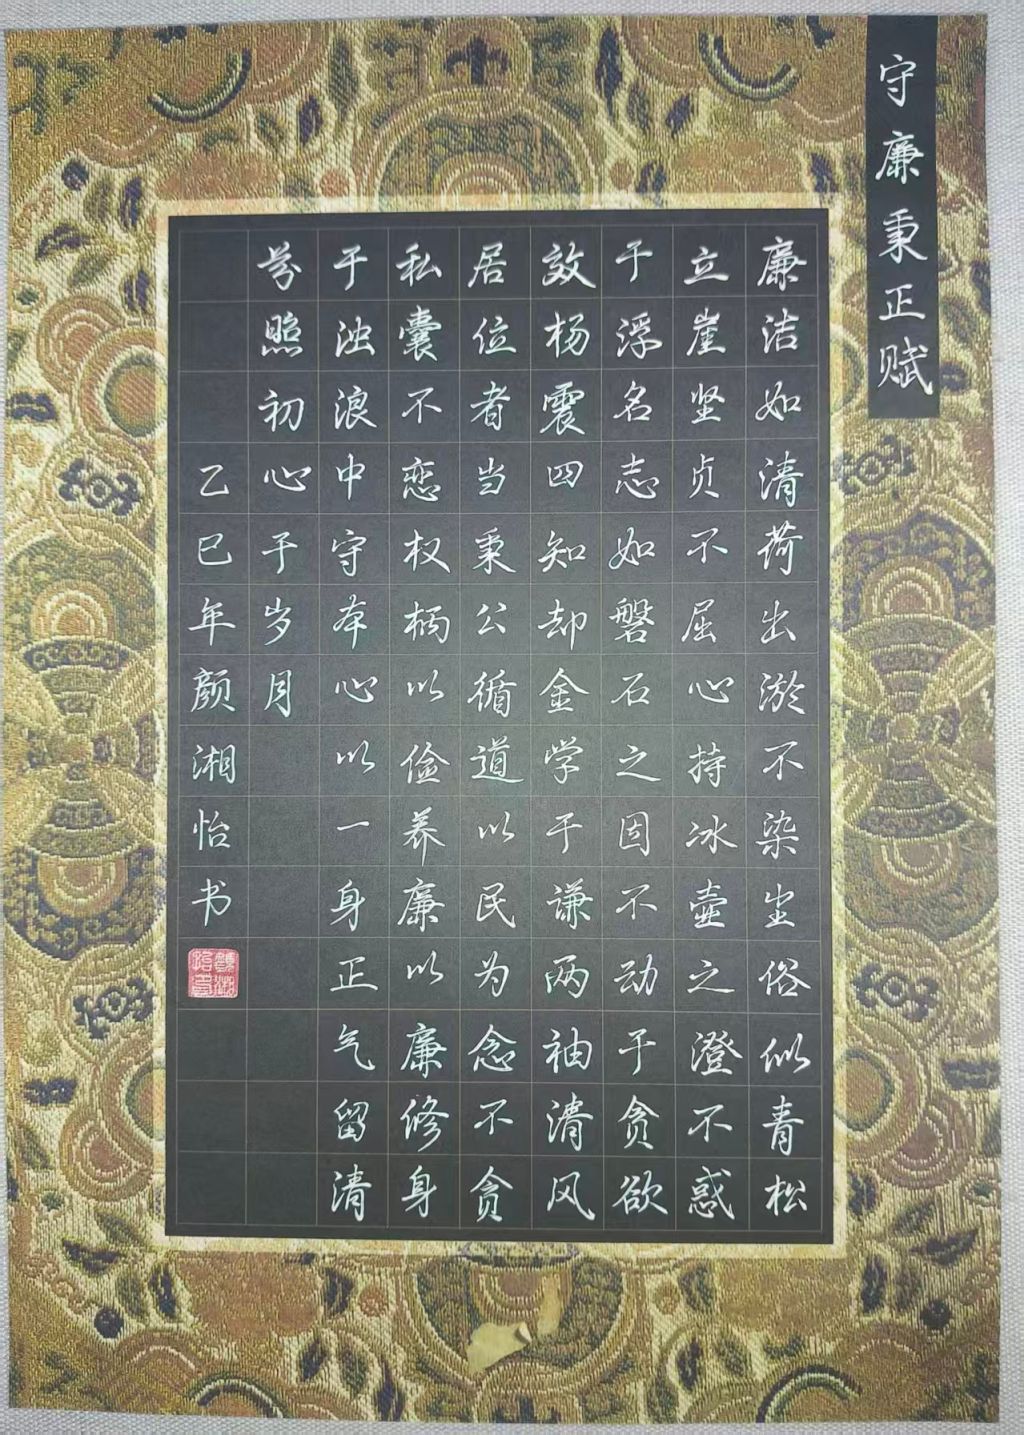 守廉秉正赋
廉洁如清荷出淤不染尘俗似青松
立崖坚贞不屈心持冰壶之澄不惑
于浮名志如磐石之固不动于贪欲
效杨震四知却金学于谦两袖清风
居位者当秉公循道以民为念不贪
私囊不恋权柄以俭养廉以廉修身
于浊浪中守本心以一身正气留清
芬照初心于岁月
乙巳年颜湘怡书